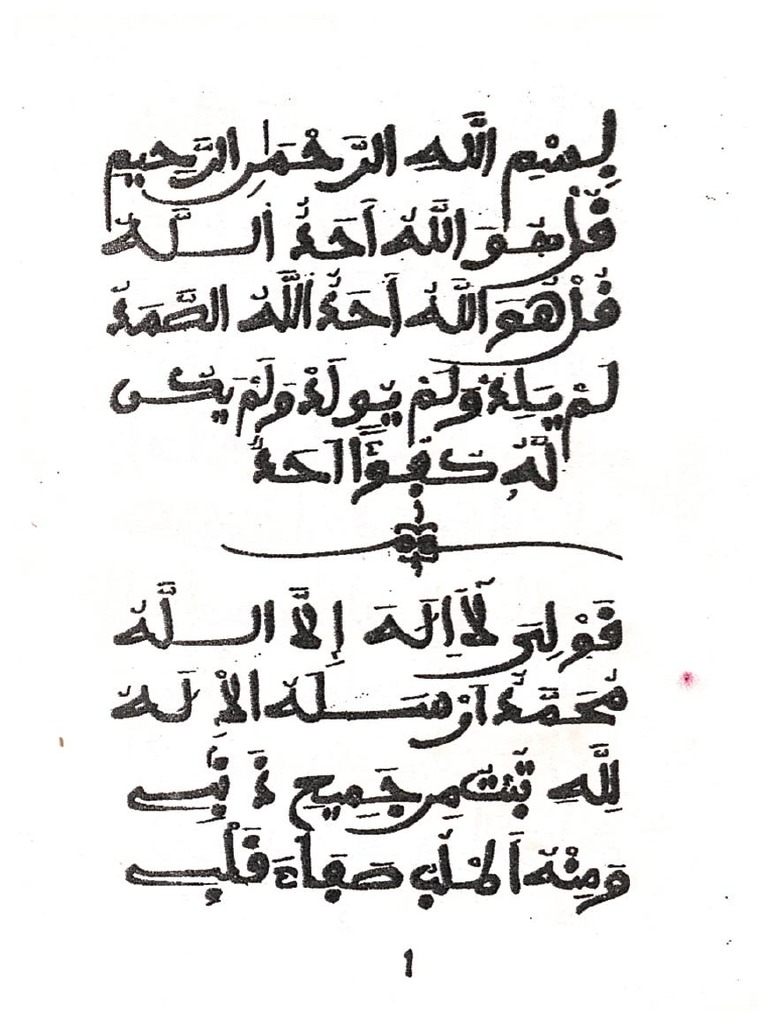 بِسْمِ اللَّهِ الرَّحْمَٰنِ الرَّحِيمِ
قُلْ هُوَ اللَّهُ أَحَدٌ اللَّهُ
قُلْ هُوَ اللَّهُ أَحَدٌ اللَّهُ الصَّمَدُ
لَمْ يَلِدْ وَلَمْ يُولَدْ وَلَمْ يَكُن
لَّهُ كُفُوًا أَحَدٌ
قَوْلِيَ لَا إِلَهَ إِلَّا اللَّهُ
مُحَمَّدٌ أَرْسَلَهُ الْإِلَهُ
لِلَّهِ تُبْتُ مِن جَمِيعِ ذَنْبِي
وَمِنْهُ أَطْلُبُ صَفَاءَ قَلْبِي
1